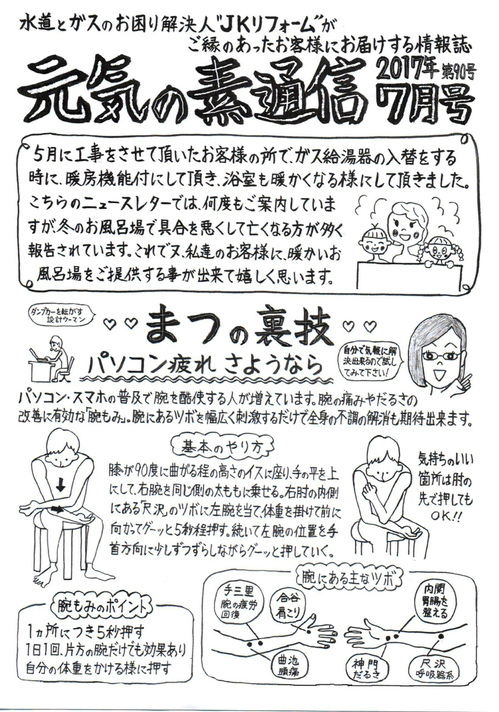 水道とガスのお困り解決人"JKリフォーム"が
ご縁のあったお客様にお届けする情報誌
元気の素通信
2017年 第90号
7月号
5月に工事をさせて頂いたお客様の所で、ガス給湯器の入替をする
時に、暖房機能付にして頂き、浴室も暖かくなる様にして頂きました。
こちらのニュースレターでは、何度もご案内していま
すが、冬のお風呂場で具合を悪くして亡くなる方が多く
報告されています。これで又、私達のお客様に、暖かいお
風呂場をご提供する事が出来て嬉しく思います。
ダンプカーを転がす
設計ウーマン
まつの裏技
パソコン疲れ さようなら
自分で気軽に解
決出来るので試し
てみて下さい!
パソコン・スマホの普及で腕を酷使する人が増えています。腕の痛みやだるさの
改善に有効な「腕もみ」。腕にあるツボを幅広く刺激するだけで全身の不調の解消も期待出来ます。
基本のやり方
膝が90度に曲がる程の高さのイスに座り、手の平を上
にして、右腕を同じ側の太ももに乗せる。右肘の内側
にある尺沢のツボに左腕を当て、体重を掛けて前に
向かってグーッと5秒程押す。続いて左腕の位置を手
首方向に少しずつずらしながらグーッと押していく。
気持ちのいい
箇所は肘の
先で押しても
OK!!
腕もみのポイント
1ヵ所につき5秒押す
1日1回、片方の腕だけでも効果あり
自分の体重をかける様に押す
腕にある主なツボ
手三里
腕の疲労
回復
合谷
肩こり
内関
胃腸を
整える
曲池
頭痛
神門
だるさ
尺沢
呼吸器系